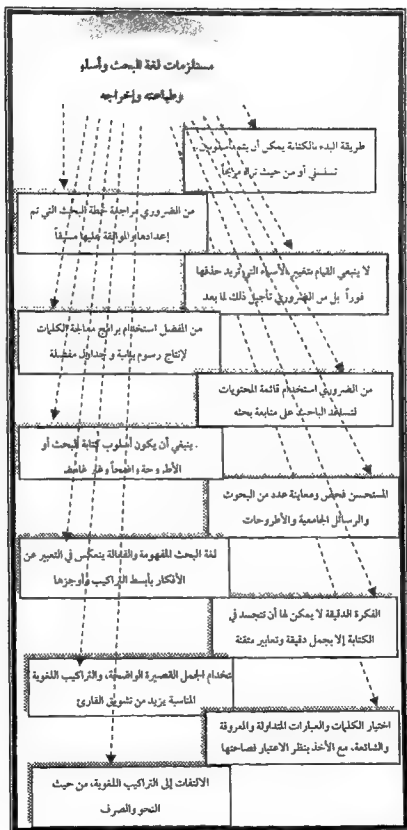 مستلزمات لغة البحث وأسلو
وطباعته وإخراجه
طريقة البدء بالكتابة يمكن أن يتم بأسلوبين
تسلسلي أو من حيث نراه مريحاً
من الضروري مراجعة خطة البحث التي تم
إعدادها والموافقة عليها مسبقاً
لا ينبغي القيام بتغيير الأشياء التي تريد حذفها
فوراً بل من الضروري تأجيل ذلك لما بعد
من المفضل استخدام برامج معالجة الكلمات
لإنتاج رسوم بيانية وجداول مفضلة
من الضروري استخدام قائمة المحتويات
لتساعد الباحث على متابعة بحثه
. ينبغي أن يكون أسلوب كتابة البحث أو
الأطروحة واضحاً وغير غامض
المستحسن فحص ومعاينة عدد من البحوث
والرسائل الجامعية والأطروحات
لغة البحث المفهومة والفعالة ينعكس في التعبير عن
الأفكار بأبسط التراكيب وأوجزها
الفكرة الدقيقة لا يمكن لها أن تتجسد في
الكتابة إلا بجمل دقيقة وتعابير متقنة
تخدام الجمل القصيرة الواضحة، والتراكيب اللغوية
المناسبة يزيد من تشويق القارئ
اختيار الكلمات والعبارات المتداولة والمعروفة
والشائعة، مع الأخذ بنظر الاعتبار فصاحتها
الالتفات إلى التراكيب اللغوية، من حيث
النحو والصرف